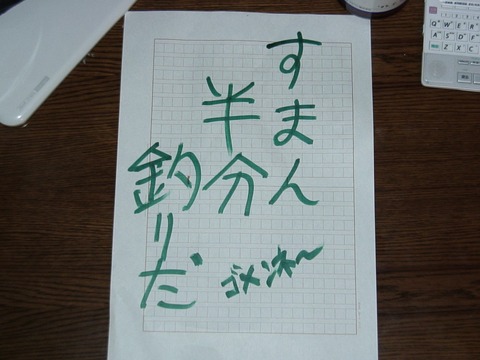 すまん
半分
釣りだ
ゴメンネ〜